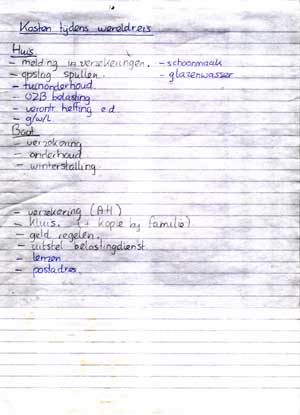 Kosten tijdens wereldreis
Huis
- melding inz verzekeringen. - schoonmaak
- opslag spullen. - glazenwasser
- tuinonderhoud.
- OZB belasting
- verontr. heffing e.d.
- g/w/l
Boot
- verzekering
- onderhoud
- winterstalling.
- verzekering (AH)
- kluis. (+ kopie bij familie)
- geld regelen.
- uitstel belastingdienst
- lenzen
- postadres.